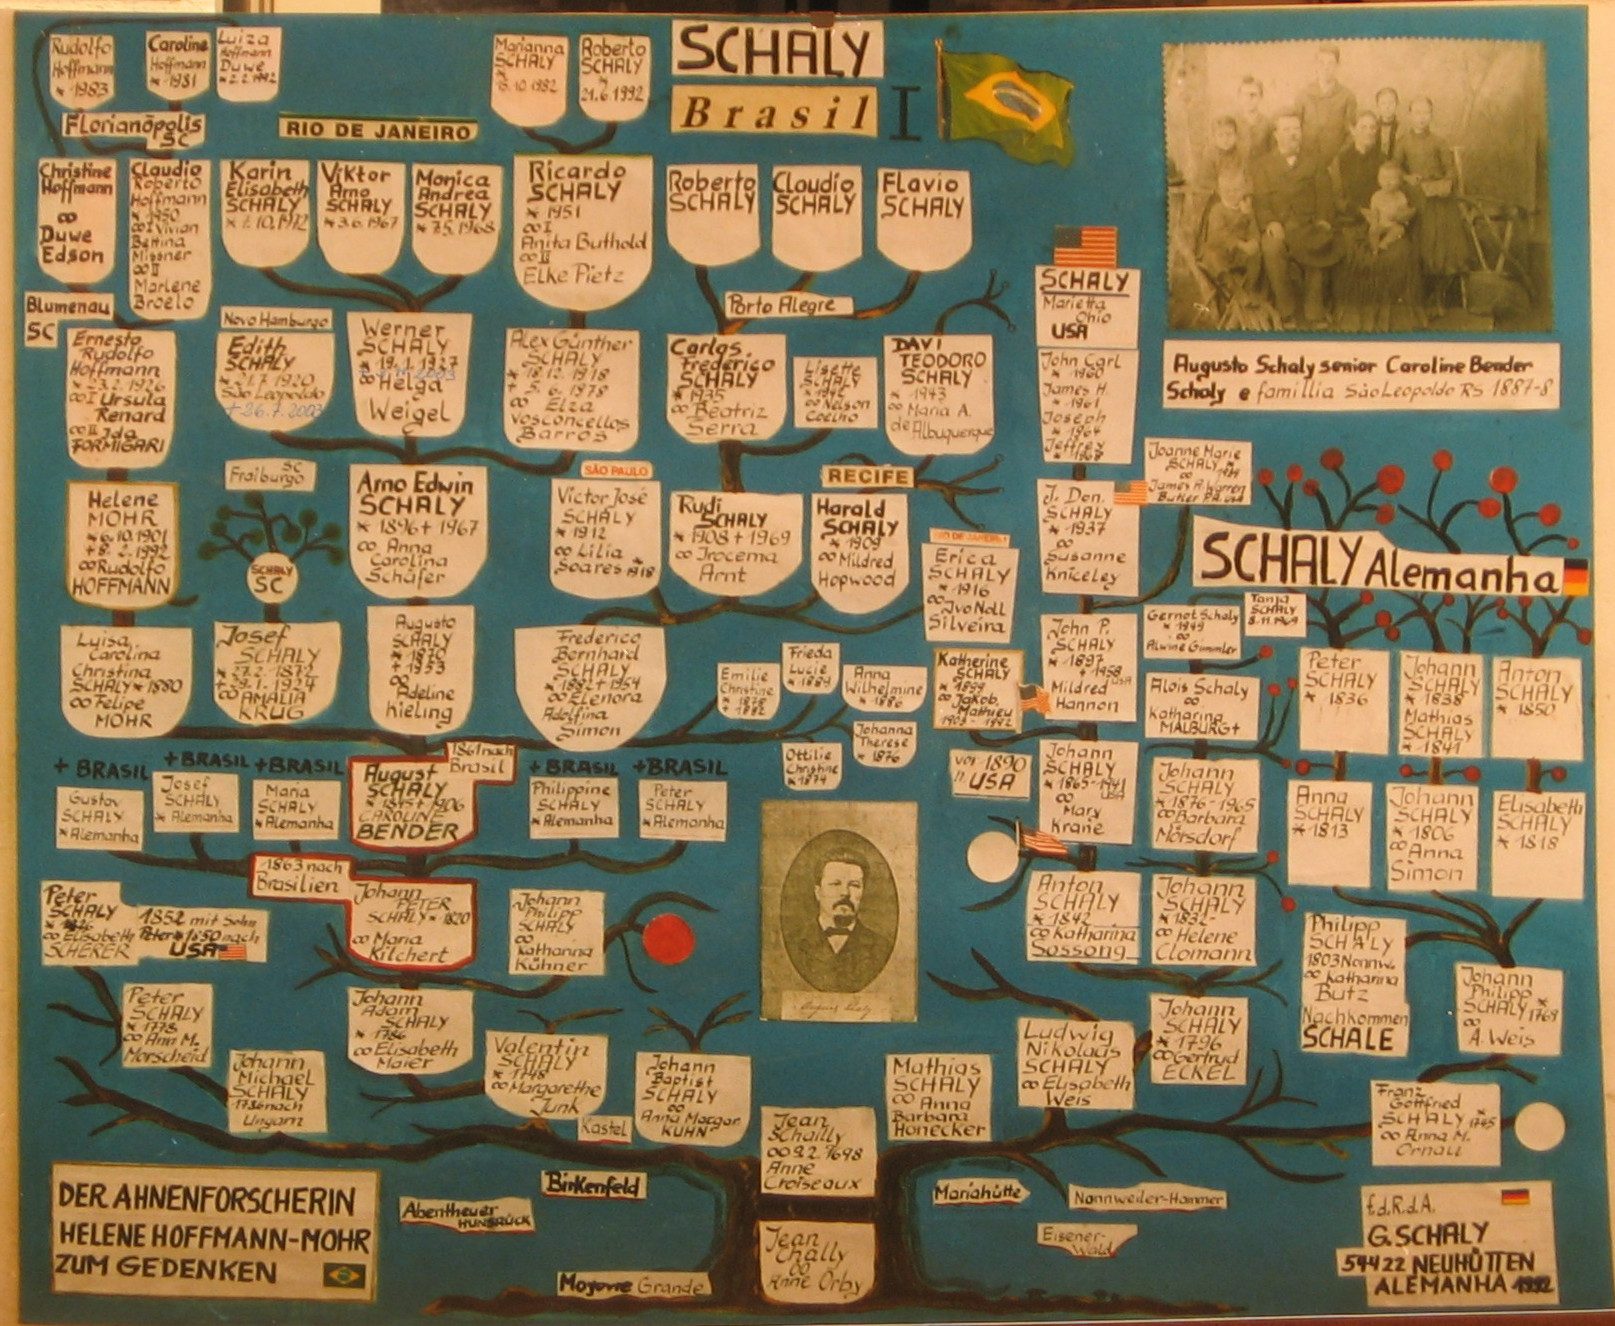 SCHALY
Brasil I
Rudolfo
Hoffmann
* 1983
Caroline
Hoffmann
* 1981
Luiza
Hoffmann
Duwe
Florianópolis
SC
RIO DE JANEIRO
Marianna
SCHALY
10. 1982
Roberto
SCHALY
21.6.1992
Christine
Hoffmann
∞
Duwe
Edson
Claudio
Roberto
Hoffmann
* 1950
∞ I Vivian
Bettina
Missner
∞ II
Marlene
Broelo
Karin
Elisabeth
SCHALY
Viktor
Arno
SCHALY
* 3.6.1967
Monica
Andrea
SCHALY
* 7.5.1968
Ricardo
SCHALY
* 1951
∞ I
Anita Buthold
∞ II
Elke Pietz
Roberto
SCHALY
Claudio
SCHALY
Flavio
SCHALY
SCHALY
Marietta
Ohio
USA
John Carl
* 1960
James H.
* 1961
Joseph
* 1964
Jeffrey
Augusto Schaly senior Caroline Bender
Schaly e famillia São Leopoldo RS 1887-8
Blumenau
SC
Ernesto
Rudolfo
Hoffmann
* 23.2.1926
∞ I Ursula
Renard
∞ II Ida
FORMIGARI
Novo Hamburgo
Edith
SCHALY
1.7.1920
São Leopoldo
+ 26.7.2003
Werner
SCHALY
∞ Helga
Weigel
Alex Günther
SCHALY
* 18.12.1918
+ 5.6.1978
∞ Elza
Vosconcellos
Barros
Porto Alegre
Carlos
Frederico
SCHALY
* 1935
∞ Beatriz
Serra
Lisette
SCHALY
* 1942
∞ Nelson
Coelho
DAVI
TEODORO
SCHALY
* 1943
∞ Maria A.
de Albuquerque
Joanne Marie
SCHALY
James A. Warren
Butler PA.
Helene
MOHR
* 6.10.1901
+ 8.2.1992
∞ Rudolfo
HOFFMANN
SC
Fraiburgo
SCHALY
SC
Arno Edwin
SCHALY
* 1896 + 1967
∞ Anna
Carolina
Schäfer
SÃO PAULO
Victor José
SCHALY
* 1912
∞ Lilia
Soares * 1918
Rudi
SCHALY
* 1908 + 1969
∞ Irocema
Arnt
RECIFE
Harald
SCHALY
* 1909
∞ Mildred
Hopwood
RIO DE JANEIRO
Erica
SCHALY
* 1916
∞ Ivo Noll
Silveira
J. Don.
SCHALY
* 1937
∞
Susanne
Kniceley
SCHALY Alemanha
Luisa
Carolina
Christina
SCHALY * 1880
∞ Felipe
MOHR
Josef
SCHALY
∞ AMALIA
KRUG
Augusto
SCHALY
* 1870
+ 1953
∞
Adeline
Kieling
Frederico
Bernhard
SCHALY
* 1882 + 1954
∞ Elenora
Adolfina
Simon
Emilie
Christine
* 1878
+ 1882
Frieda
Lucie
* 1884
Anna
Wilhelmine
* 1886
Johanna
Therese
* 1876
Ottilie
Christine
* 1874
Katherine
SCHALY
* 1894
∞ Jakob
Mathieu
John P.
SCHALY
* 1897
+ 1958
USA
Mildred
Hannon
Gernot Schaly
* 1949
∞
Alwine Gimmler
Tanja
SCHALY
8.11.1969
Alois Schaly
∞
Katharina
MALBURG +
Peter
SCHALY
* 1836
Johann
SCHALY
* 1838
Mathias
SCHALY
* 1841
Anton
SCHALY
* 1850
+ BRASIL
+ BRASIL
+ BRASIL
+ BRASIL
+ BRASIL
Gustav
SCHALY
* Alemanha
Josef
SCHALY
* Alemanha
Maria
SCHALY
* Alemanha
1861 nach
Brasil
August
SCHALY
* 1845 + 1906
CAROLINE
BENDER
Philippine
SCHALY
* Alemanha
Peter
SCHALY
* Alemanha
vor 1890
n. USA
Johann
SCHALY
* 1865-1941
USA
∞
Mary
Krane
Johann
SCHALY
* 1876-1965
∞ Barbara
Mörsdorf
Anna
SCHALY
* 1813
Johann
SCHALY
* 1806
∞ Anna
Simon
Elisabeth
SCHALY
* 1818
1863 nach
Brasilien
Johann
PETER
SCHALY * 1820
∞ Maria
Kilchert
Peter
SCHALY
∞ Elisabeth
SCHERER
1852 mit Sohn
Peter * 1850 nach
USA
Johann
Philipp
SCHALY
∞
Katharina
Kühner
Anton
SCHALY
* 1842
∞ Katharina
Sossong
Johann
SCHALY
* 1832-
∞ Helene
Clomann
Philipp
SCHALY
1803 Nonnw.
∞ Katharina
Butz
Nachkommen
SCHALE
Johann
Philipp
SCHALY * 1769
∞
A. Weis
Peter
SCHALY
* 1778
∞ Ann M.
Morscheid
Johann
Adam
SCHALY
* 1786
∞ Elisabeth
Maier
Johann
Michael
SCHALY
1786 nach
Ungarn
Valentin
SCHALY
* 1748
∞ Margarethe
Junk
Kastel
Johann
Baptist
SCHALY
∞
Anna Margar.
KUHN
Mathias
SCHALY
∞ Anna
Barbara
Honecker
Ludwig
Nikolaus
SCHALY
∞ Elisabeth
Weis
Johann
SCHALY
* 1796
∞ Gertrud
ECKEL
Franz
Gottfried
SCHALY * 1745
∞ Anna M.
Ornau
Jean
Schailly
∞ 9.2.1698
Anne
Croiseaux
Jean
Chally
∞
Anne Orby
DER AHNENFORSCHERIN
HELENE HOFFMANN-MOHR
ZUM GEDENKEN
Abentheuer
HUNSRÜCK
Birkenfeld
Grande
Mariahütte
Nonnweiler-Hammer
Eisener-
Wald
f.d.R.d.A.
G. SCHALY
54422 NEUHÜTTEN
ALEMANHA 1992